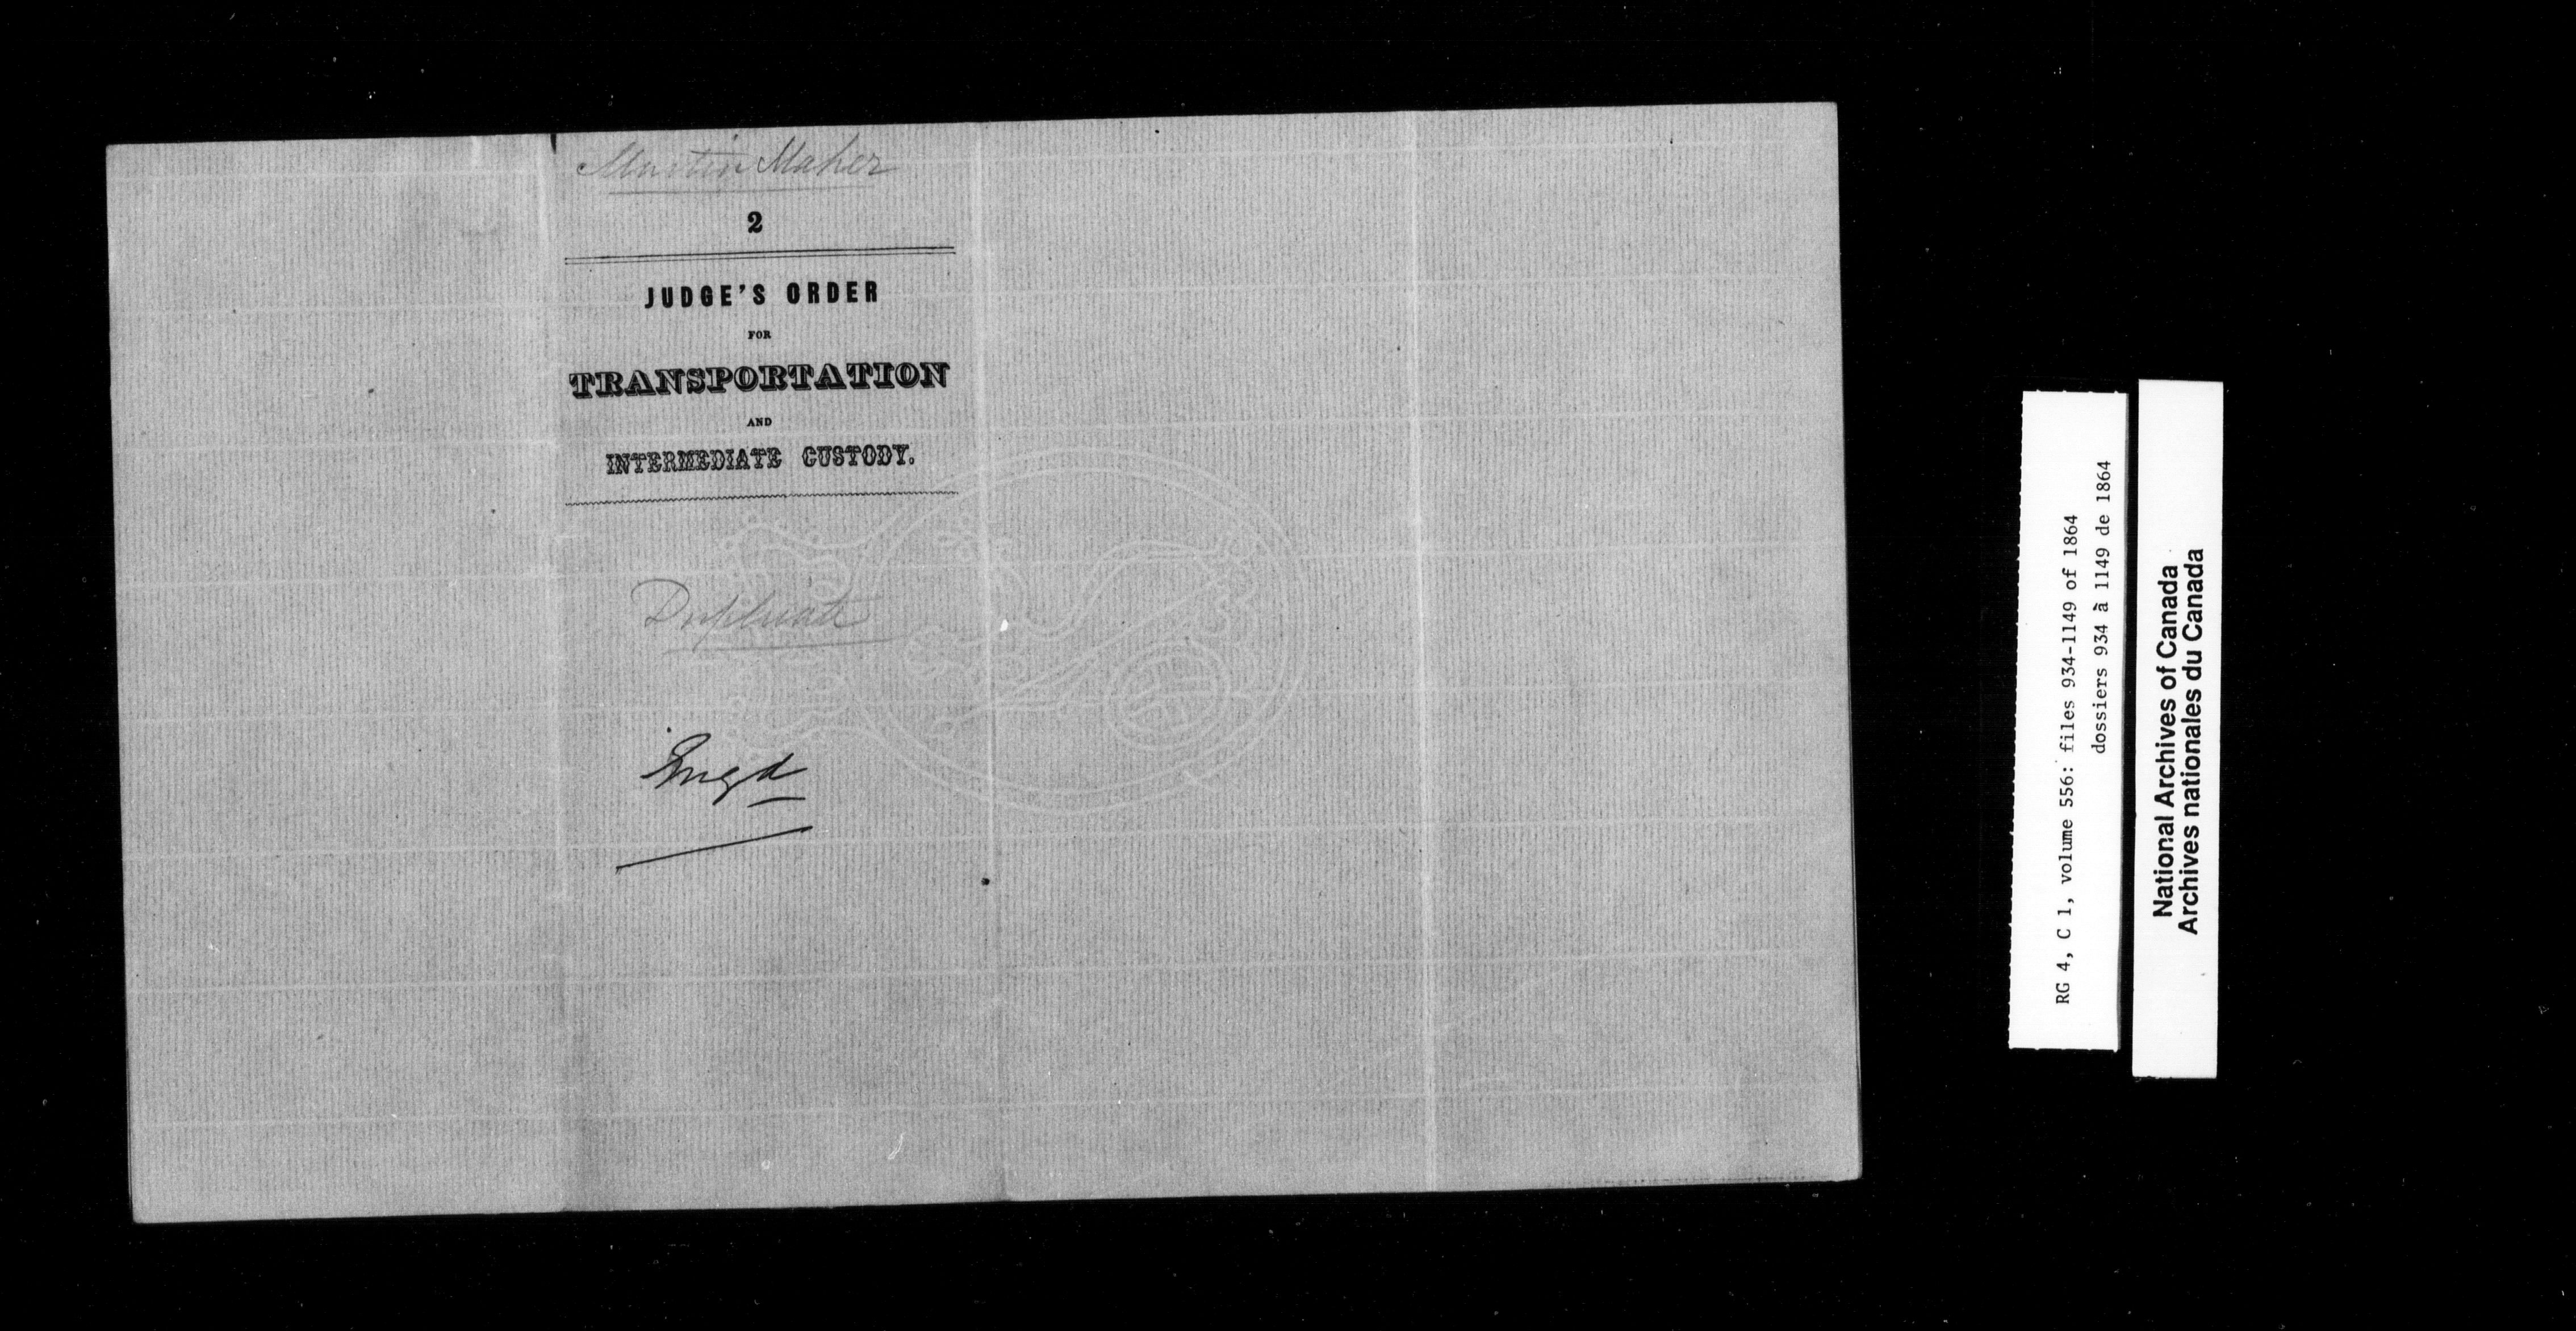 Martin Maher
2
JUDGE'S ORDER
FOR
TRANSPORTATION
AND
INTERMEDIATE CUSTODY.
Duplicate
RG 4, C 1, volume 556: files 934-1149 of 1864
dossiers 934 à 1149 de 1864
National Archives of Canada
Archives nationales du Canada